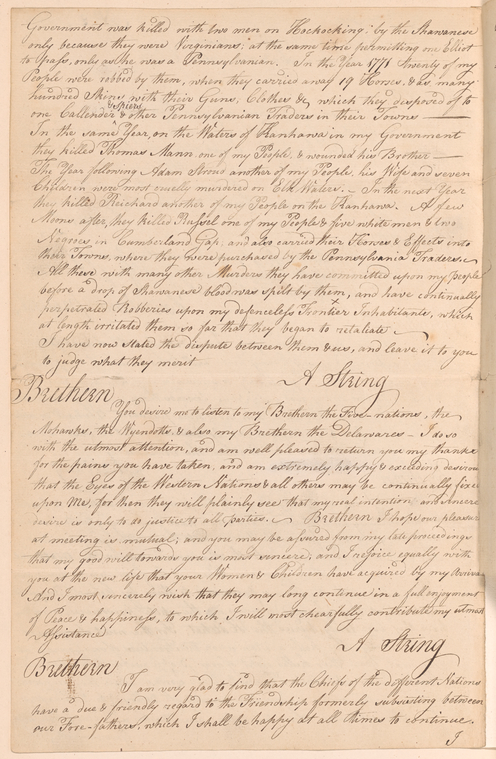 Government was killed with two men on Hockocking by the Shawanese
only because they were Virginians; at the same time permitting one Elliot
to pass, only as he was a Pennsylvanian. In the Year 1771 Twenty of my
People were robbed by them, when they carried away 19 Horses, & as many
hundred Skins, with their Guns, Clothes & which they disposed of to
one Callender & Spears & other Pennsylvanian Traders in their Towns
In the same Year, on the Waters of Kanhawa in my Government
they killed Thomas Mann one of my People, & wounded his Brother —
The Year following Adam Stroud another of my People, his Wife and seven
Children were most cruelly murdered on Elk Waters. – In the next Year
they killed Reichard another of my People on the Kanhawa. A few
Moons after, they killed Russel one of my People & five white men & two
Negroes in Cumberland Gap, and also carried their Horses & Effects into
their Towns, where they were purchased by the Pennsylvania Traders.
All these with many other Murders they have committed upon my People
before a drop of Shawanese blood was spilt by them, and have continually
perpetrated Robberies upon my defenceless Frontier Inhabitants, which
at length irritated them so far that they began to retaliate
I have now stated the dispute between them & us, and leave it to you
to judge what they merit
A String
Brethern
You desire me to listen to my Brethern the Five-nations, the
Mohawks, the Wyendotts, & also my Brethern the Delawares – I do so
with the utmost attention, and am well pleased to return you my thanks
for the pains you have taken, and am extremely happy & exceeding desirous
that the Eyes of the Western Nations & all others may be continually fixed
upon Me, for then they will plainly see that my real intention and sincere
desire is only to do justice to all parties. Brethern I hope our pleasure
at meeting is mutual; and you may be assured from my late proceedings
that my good will towards you is most sincere, and I rejoice equally with
you at the new life that your Women & Children have acquired by my Arrival
And I most sincerely wish that they may long continue in a full enjoyment
of Peace & happiness, to which I will most chearfully contribute my utmost
Assistance
A String
Brethern
I am very glad to find that the Chiefs of the different Nations
have a due & friendly regard to the Friendship formerly subsisting between
our Fore-fathers, which I shall be happy at all times to continue.
I